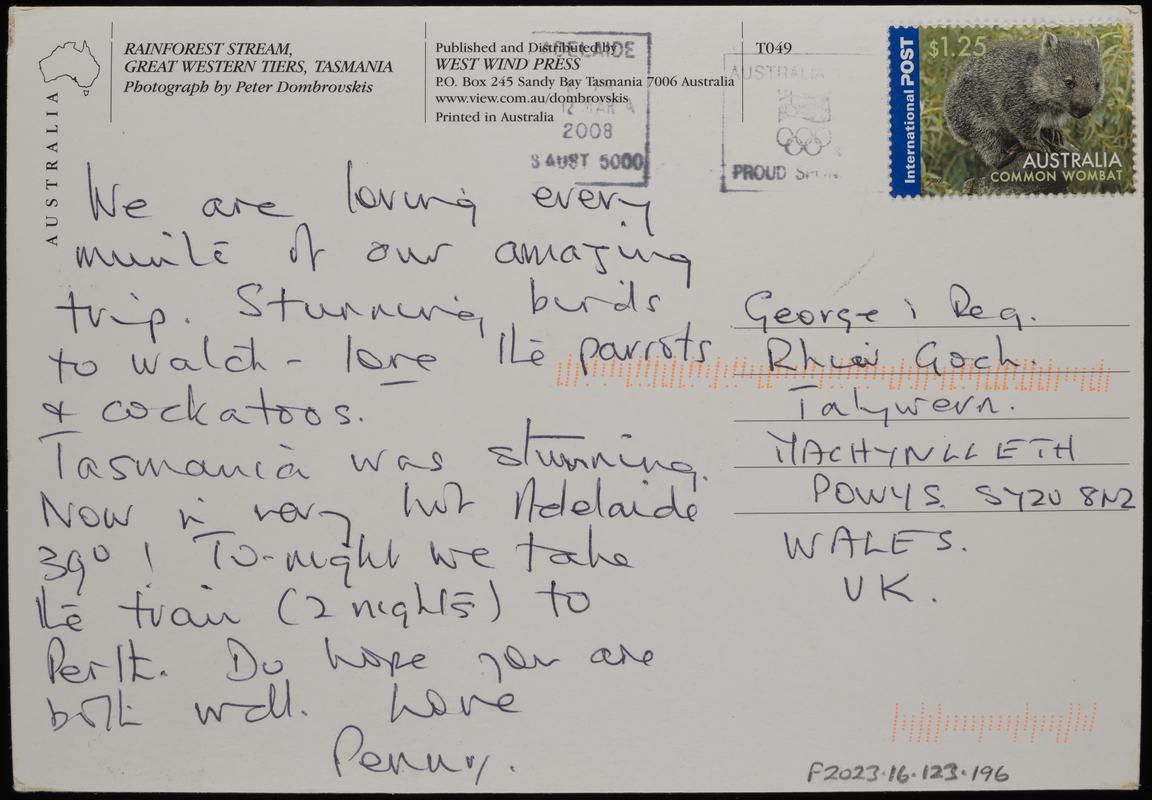 RAINFOREST STREAM,
GREAT WESTERN TIERS, TASMANIA
Photograph by Peter Dombrovskis
AUSTRALIA
Published and Distributed by
WEST WIND PRESS
P.O. Box 245 Sandy Bay Tasmania 7006 Australia
www.view.com.au/dombrovskis
Printed in Australia
T049
ADELAIDE
12 MAR
2008
S AUST 5000
AUSTRALIA
PROUD
International POST
$1.25
AUSTRALIA
COMMON WOMBAT
We are loving every
minute of our amazing
trip. Stunning birds
to watch - love the parrots
& cockatoos.
Tasmania was stunning.
Now in very hot Adelaide
39º! To-night we take
the train (2 nights) to
Perth. Do hope you are
both well. Love
Penny.
George i Reg.
Rhiw Goch.
Talywern.
MACHYNLLETH
POWYS. SY20 8NZ
WALES.
UK.
F2023.16.123.196